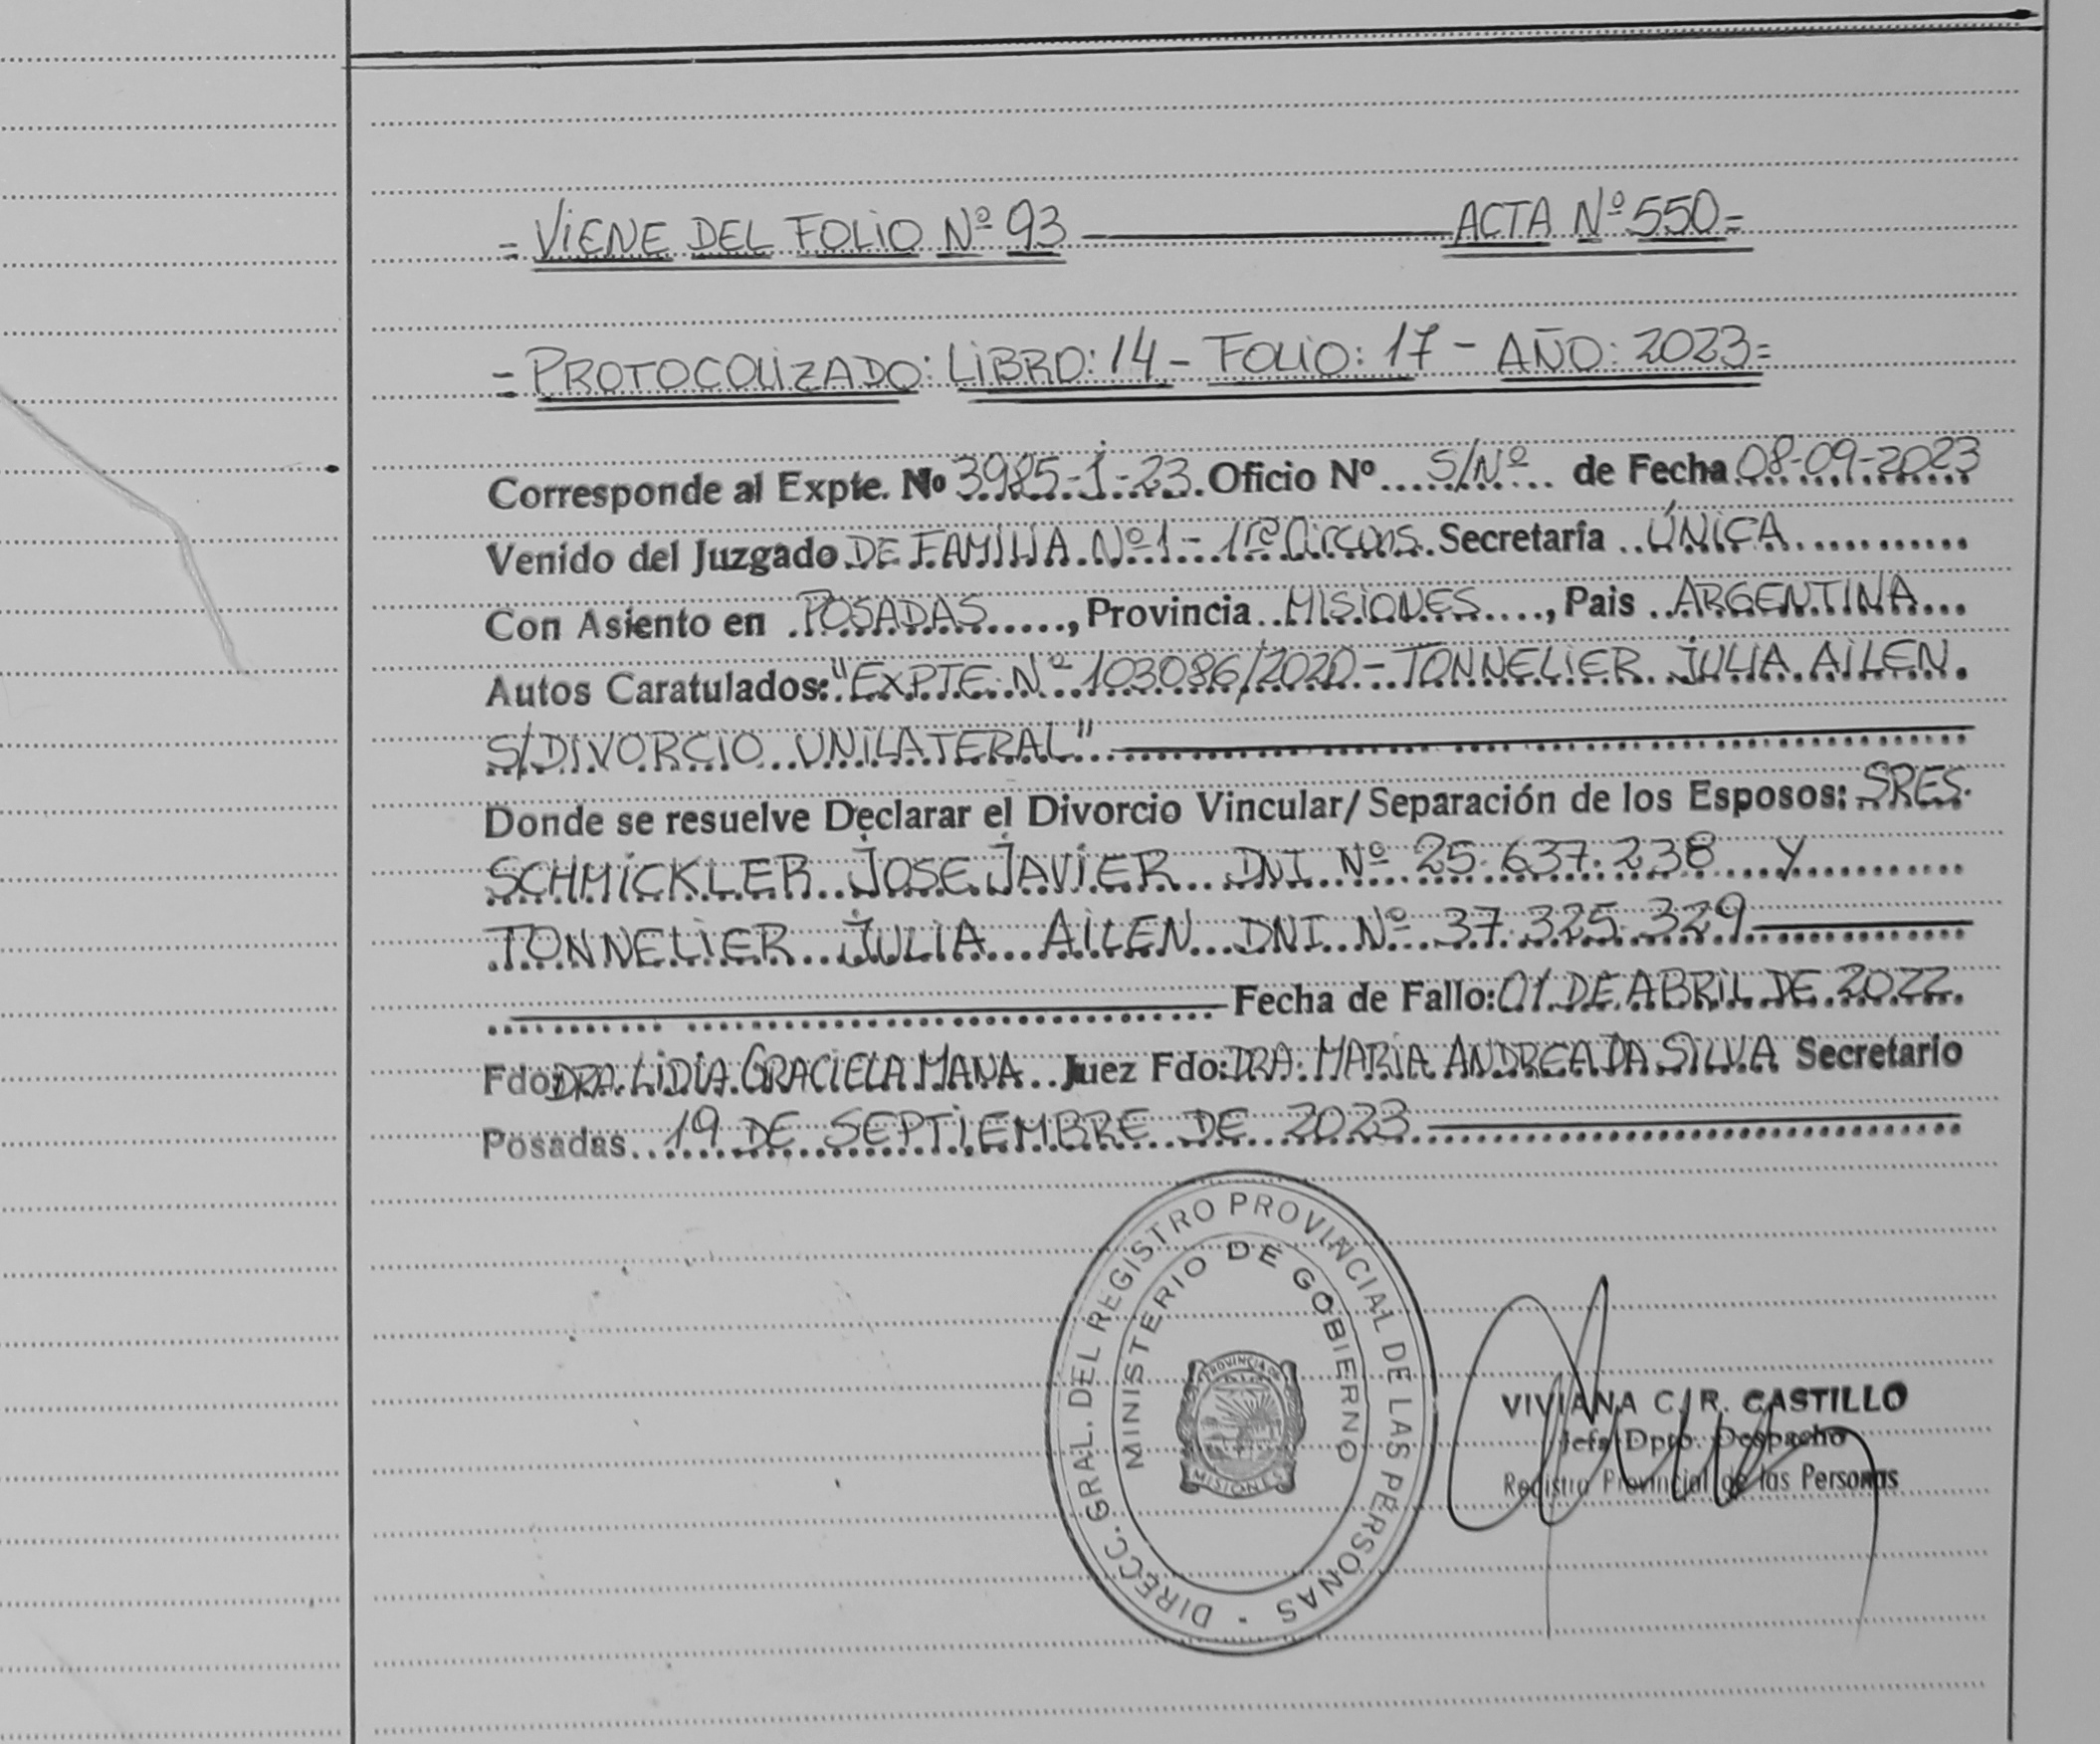 = VIENE DEL FOLIO Nº 93 ACTA Nº 550 =
= PROTOCOLIZADO: LIBRO: 14 - FOLIO: 17 - AÑO: 2023 =
Corresponde al Expte. Nº 3985-1-23. Oficio Nº S/Nº de Fecha 08-09-2023
Venido del Juzgado DE FAMILIA Nº 1 - 1ra Circuns. Secretaría ÚNICA
Con Asiento en POSADAS, Provincia MISIONES, Pais ARGENTINA
Autos Caratulados: "EXPTE. Nº 103086/2020 - TONNELIER JULIA AILEN
S/DIVORCIO UNILATERAL"
Donde se resuelve Declarar el Divorcio Vincular/Separación de los Esposos: SRES.
SCHMICKLER JOSE JAVIER DNI Nº 25.637.238 Y
TONNELIER JULIA AILEN DNI Nº 37.325.329
Fecha de Fallo: 01 DE ABRIL DE 2022
Fdo: DRA. LIDIA GRACIELA MANA Juez Fdo: DRA. MARIA ANDREA DA SILVA Secretario
Posadas 19 DE SEPTIEMBRE DE 2023
DIRECC. GRAL. DEL REGISTRO PROVINCIAL DE LAS PERSONAS -
MINISTERIO DE GOBIERNO
PROVINCIA DE
MISIONES
VIVIANA C. R. CASTILLO
Jefa Dpto. Despacho
Registro Provincial de las Personas